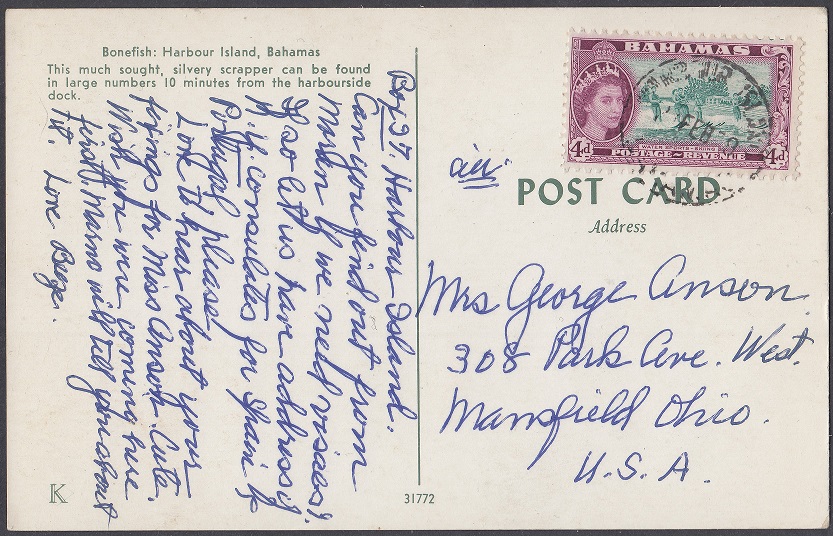 Bonefish: Harbour Island, Bahamas
This much sought, silvery scrapper can be found
in large numbers 10 minutes from the harbourside
dock.
Box 27. Harbour Island.
Can you find out from
Marlin if we need visaes?
If so let us have address of
N.Y. consulates for Spain &
Portugal please!
Love to hear about your
doings for Miss Anson. Cute.
Wish you were coming here
first. Marmo will tell you about
it. Love
K
31772
BAHAMAS
4d
4d
WATER SPORTS - SKI-ING
POSTAGE~REVENUE
AIR
FEB
air
POST CARD
Address
Mrs George Anson.
308 Park Ave. West.
Mansfield Ohio.
U.S.A.